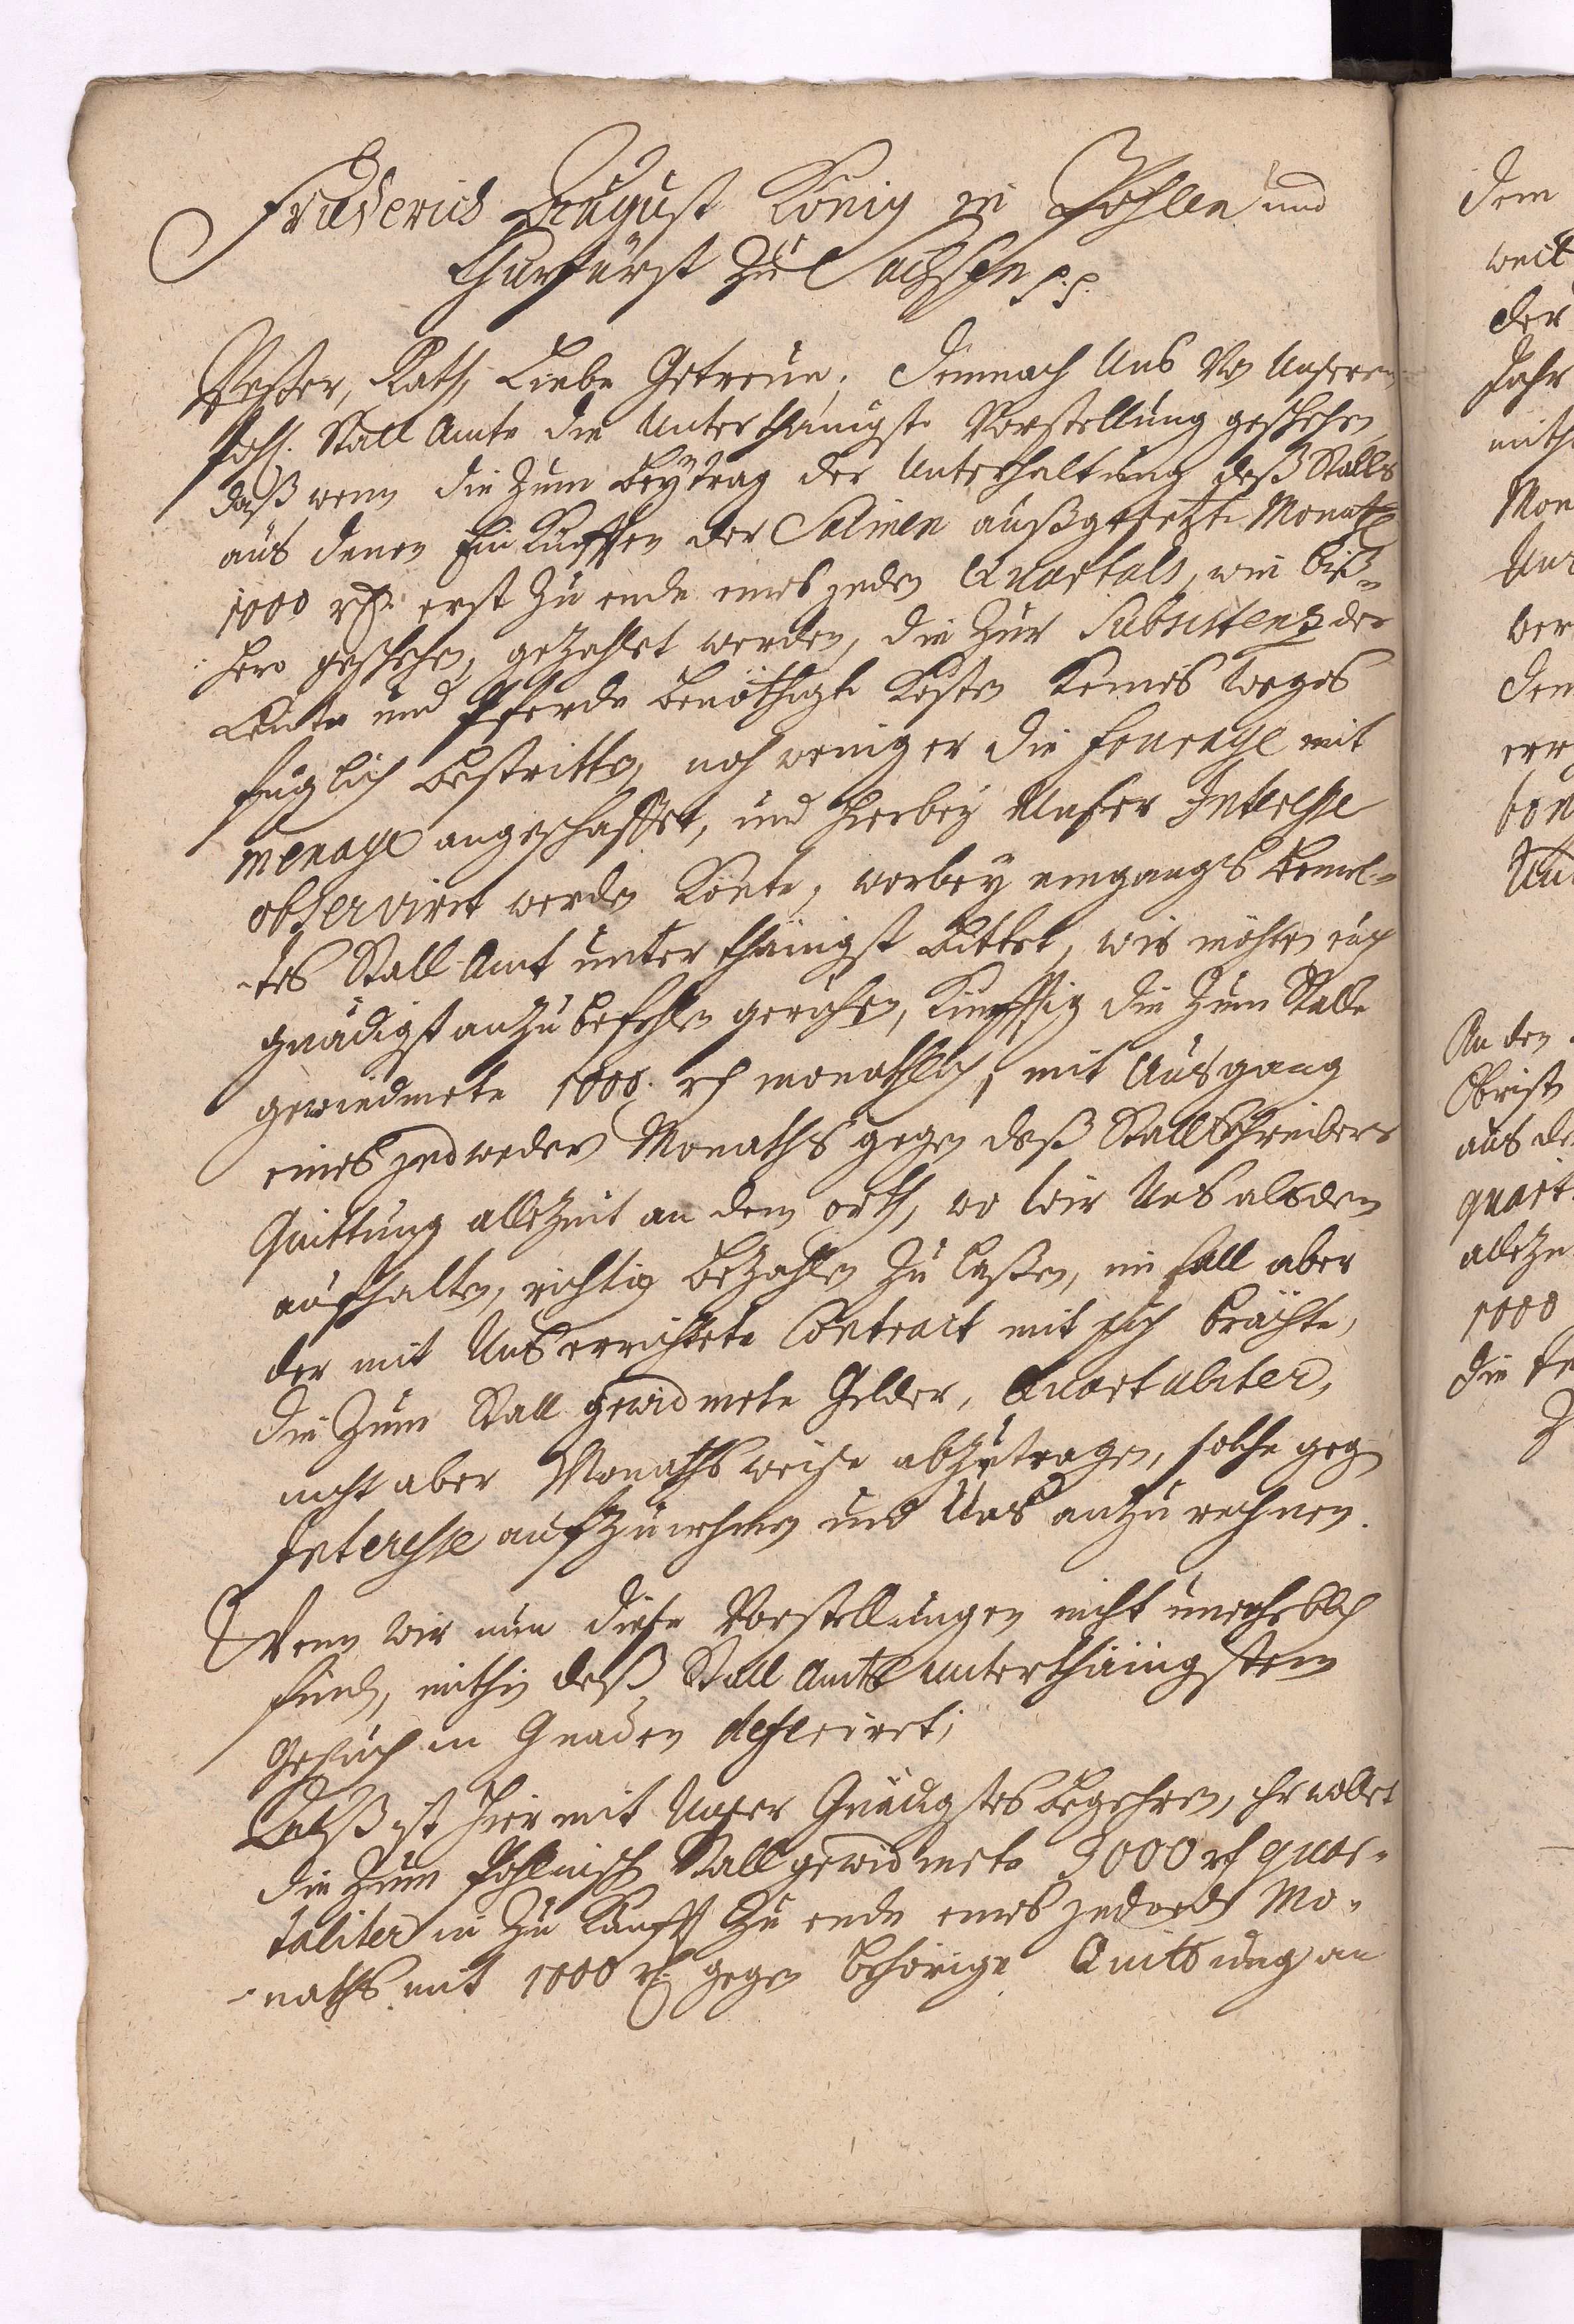 Friederich August König in Pohlen und
Churfürst zu Sachßen p.p.
Vester, Rath, Liebe Getreue. Demnach Uns von Unserem
Pohl. Stall Amte die Unterthänigste Vorstellung geschehen,
daß wenn die zum Beÿtrag der Unterhaltung deß Stalls
aus denen Einkünfften der Salinen außgesetzte Monathl.
1000 rthr. erst zu ende eines jeden Quartals, wie biß-
hero geschehen, gezahlet werden, die zur Subsistenz der
Leute und Pferde benöthigte Kosten keines weges
füglich bestritten, noch weniger die Fourage mit
menage angeschaffet, und hierbeÿ Unser Interesse
observiret werden könte, worbeÿ eingangs bemel-
-tes Stall Amt unterthänigst bittet, wir möchten euch
gnädigst anzubefehlen geruhen, künfftig die zum Stalle
gewiedmete 1000. rth monathlich, mit Ausgang
eines jedweden Monaths gegen deß Stallschreibers
Quittung allezeit an dem orth, wo wir Uns alsdenn
aufhalten, richtig bezahlen zu laßen, im fall aber
der mit Uns errichtete Contract mit sich brächte,
die zum Stall gewidmete Gelder, Quartaliter,
nicht aber Monaths weise abzutragen, solche gegen
Interesse aufzunehmen und Uns anzurechnen.
Wenn wir nun diese Vorstellungen nicht unerheblich
finden, mithin deß Stall Amts unterthänigstem
Gesuch in Gnaden deferiret;
Alß ist hiermit Unser Gnädigstes Begehren, ihr wollet
die zum Pohlnisch. Stall gewidmete 3000 rth quar-
taliter in Zukunfft zu ende eines jedweden Mo-
-naths mit 1000 rth. gegen behörige Quittung an
dem
weit
der
Jahr
mith
Mon
Un
ver
dem
err
Un
An den
Obrist
aus de
quart
alleze
1000
die